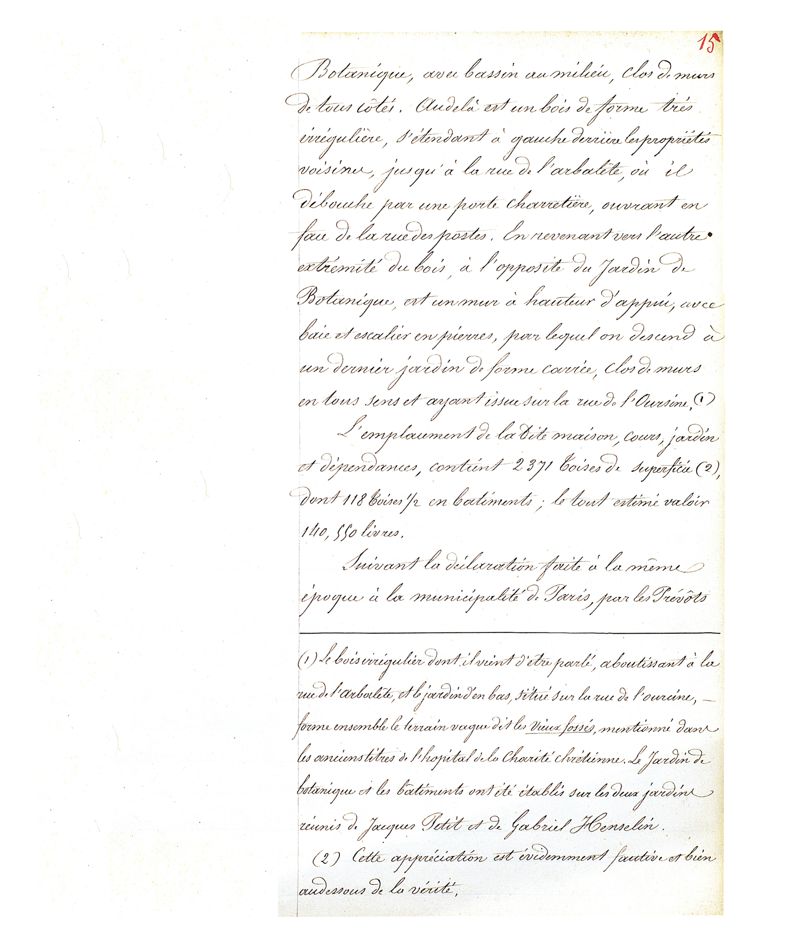 15
Botanique, avec bassin au milieu, clos de murs
de tous côtés. Au delà est un bois de forme très
irrégulière, s'étendant à gauche derrière les propriétés
voisines, jusqu'à la rue de l'arbalète, où il
débouche par une porte charretière, ouvrant en
face de la rue des postes. En revenant vers l'autre
extrémité du bois, à l'opposite du Jardin de
Botanique, est un mur à hauteur d'appui, avec
baie et escalier en pierres, par lequel on descend à
un dernier jardin de forme carrée, clos de murs
en tous sens et ayant issue sur la rue de l'Oursine. (1)
L'emplacement de la dite maison, cours, jardin
et dépendances, contient 2371 toises de superficie (2),
dont 118 toises 1/2 en batiments ; le tout estimé valoir
140,550 livres.
Suivant la déclaration faite à la même
époque à la municipalité de Paris, par les Prévôts
(1) Le bois irrégulier dont il vient d'être parlé, aboutissant à la
rue de l'arbalète, et le jardin d'en bas, situé sur la rue de l'ourcine, —
forme ensemble le terrain vague dit les Vieux fossés, mentionné dans
les anciens titres de l'hopital de la Charité Chrétienne. Le Jardin de
botanique et les bâtiments ont été établis sur les deux jardins
réunis de Jacques Petit et de Gabriel Henselin.
(2) Cette appréciation est évidemment fautive et bien
audessous de la vérité.